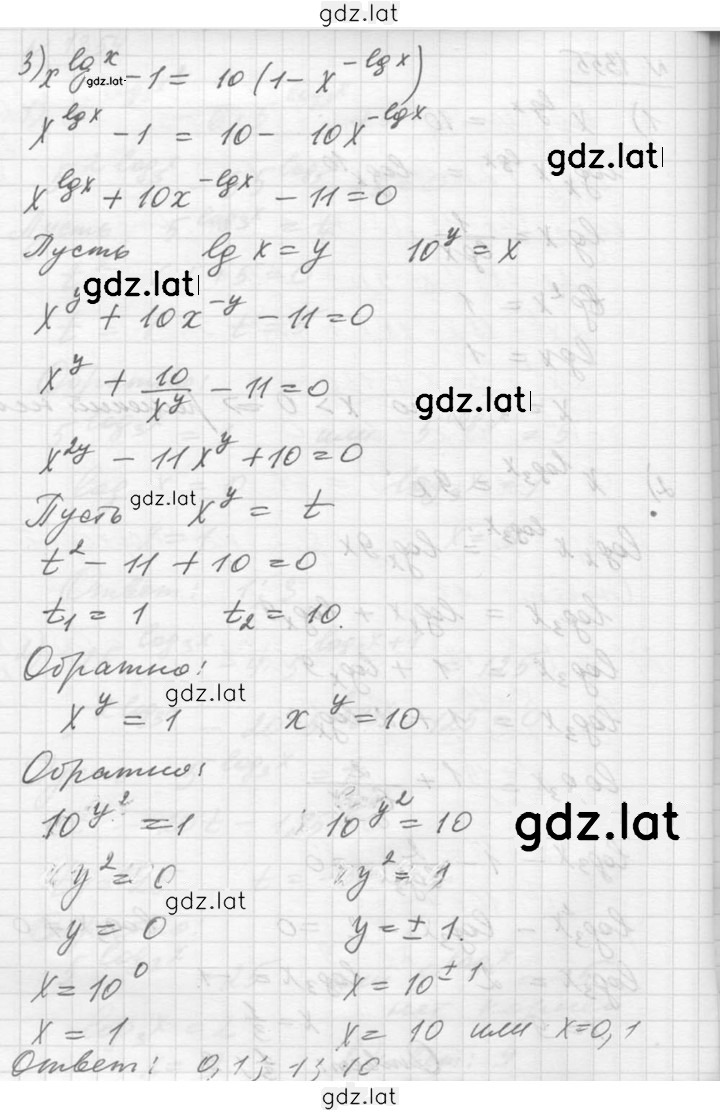 gdz.lat
3) x^lg x - 1 = 10(1 - x^-lg x)
gdz.lat
x^lgx - 1 = 10 - 10x^-lgx
gdz.lat
x^lgx + 10x^-lgx - 11 = 0
Пусть lg x = y 10^y = x
gdz.lat
x^y + 10x^-y - 11 = 0
x^y + 10/x^y - 11 = 0
gdz.lat
x^2y - 11x^y + 10 = 0
Пусть x^y = t
gdz.lat
t^2 - 11 + 10 = 0
t₁ = 1 t₂ = 10.
Обратно:
gdz.lat
x^y = 1 x^y = 10
Обратно:
10^y^2 = 1 10^y^2 = 10
gdz.lat
y^2 = 0 y^2 = 1
gdz.lat
y = 0 y = ± 1.
x = 10^0 x = 10^±1
x = 1 x = 10 или x = 0,1
Ответ: 0,1; 1; 10
gdz.lat